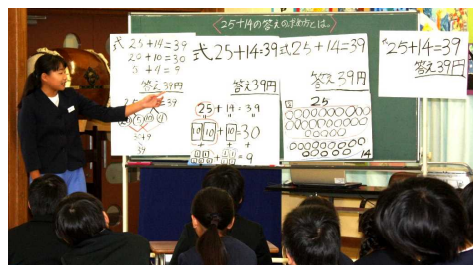 25+14の答えのだめ方とは。
式 25+14=39
20+10=30
5+4=9
答え39円
25+14=39
式25+14=39
答え39円
25+14=39
10 10 + 10 =30
=9
式25+14=39
答え39円
25
14
式25+14=39
答え39円